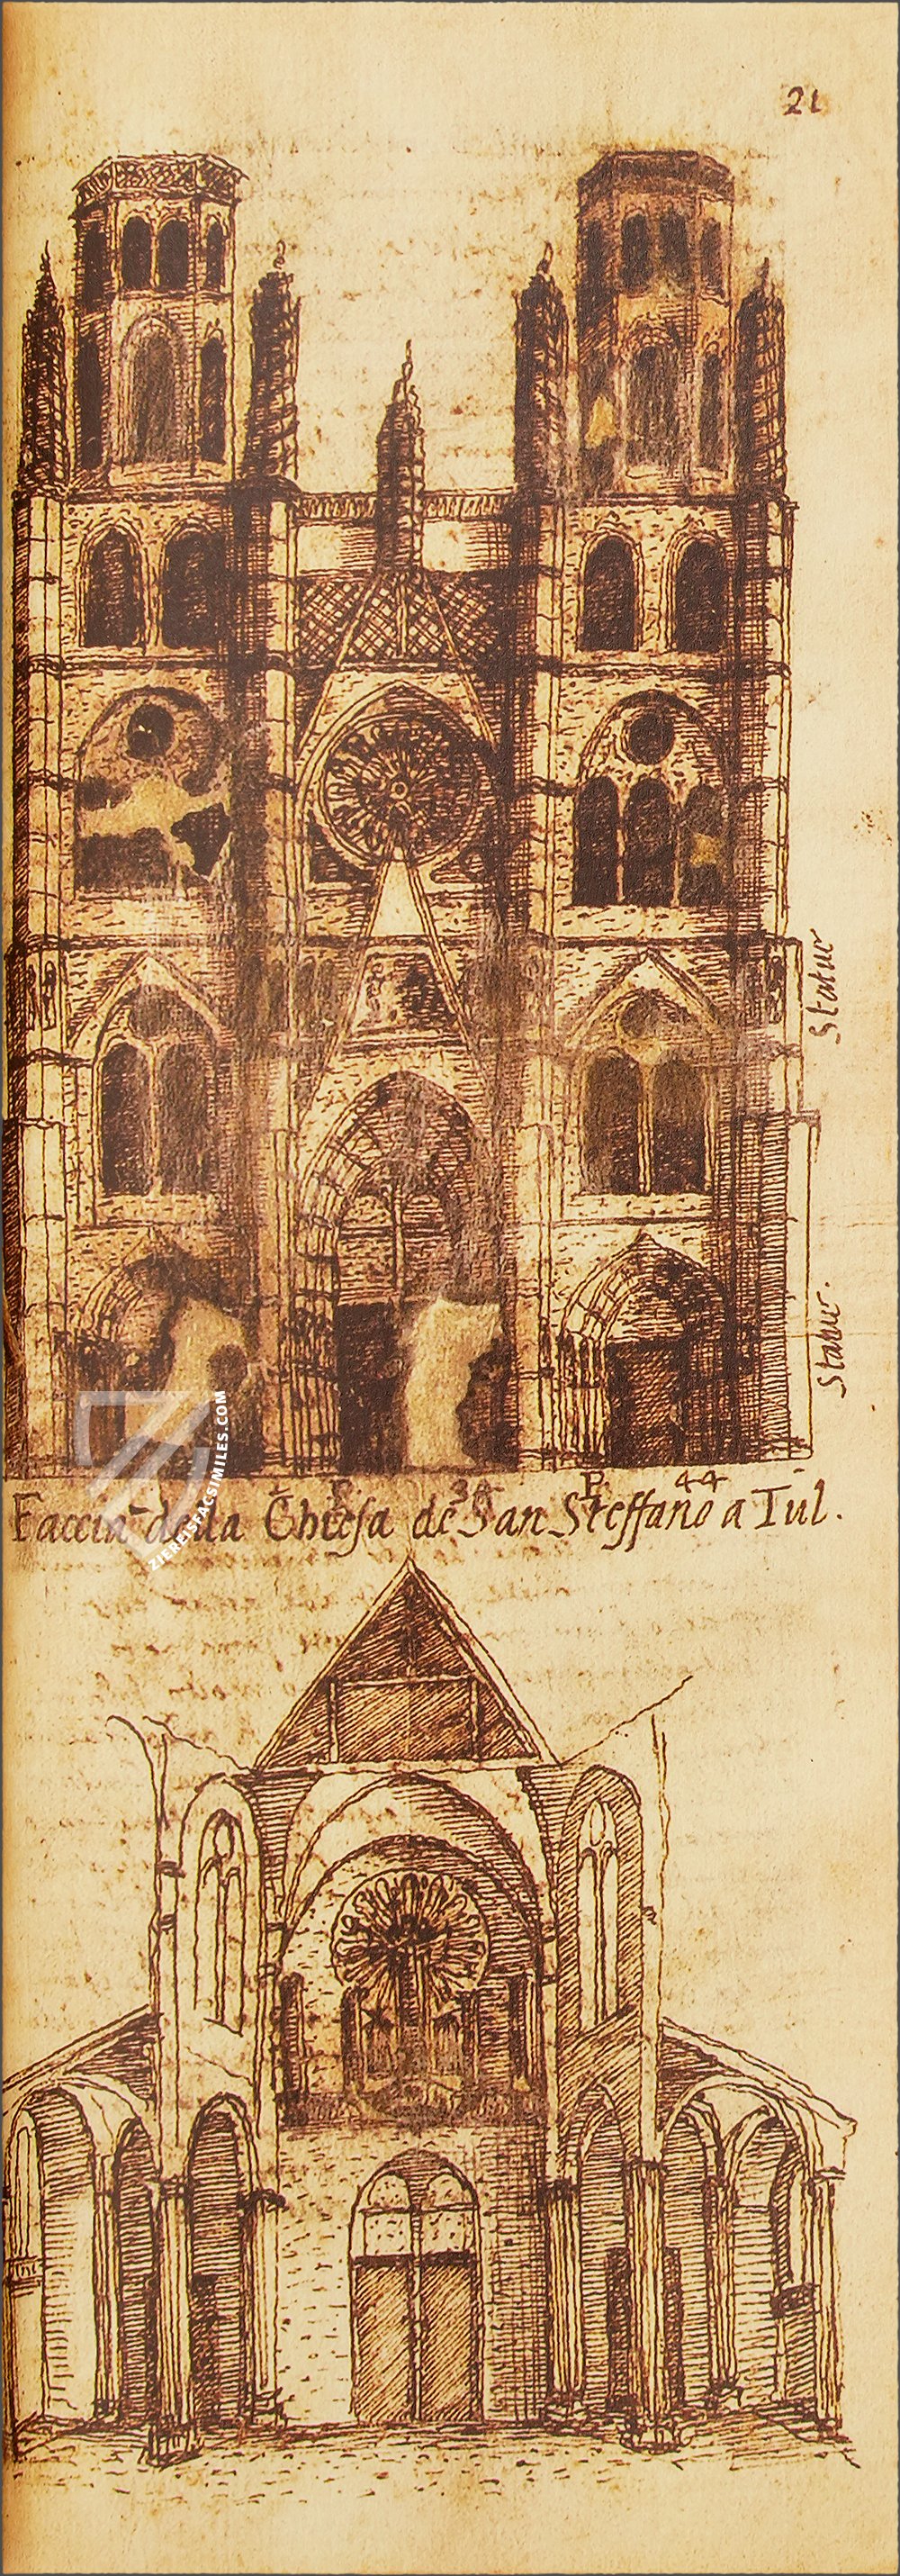 21
Statur
Statur.
P 34 P 44
Faccia della Chiesa de San Steffano a Tul.
ZIEREISFACSIMILES.COM